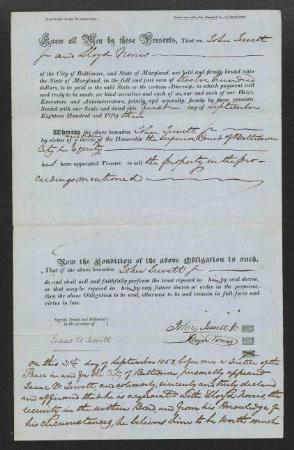 Know all Men by these Presents, That we John Jewett
Jr and Lloyd Norris
of the City of Baltimore, and State of Maryland, are held and firmly bound unto
the State of Maryland, in the full and just sum of twelve hundred
dollars, to be paid to the said State or its certain Attorney, to which payment well
and truly to be made and done, we bind ourselves and each of us, our and each of our Heirs,
Executors and Administrators, jointly and severally, firmly by these Presents.
Sealed with our seals and dated this first day of September
Eighteen Hundred and Fifty three
Whereas the above bounden John Jewett Jr
by virtue of a decree of the Honorable the Superior Court of Baltimore
City in Equity
has been appointed Trustee to sell the property in the pro-
ceedings mentioned
Now the Condition of the above Obligation is such,
That if the above bounden John Jewett Jr
do and shall well and faithfully perform the trust reposed in him by said decree,
or that may be reposed in him by any future decree or order in the premises,
then the above Obligation to be void, otherwise to be and remain in full force and
virtue in law.
Signed, Sealed and Delivered
in the presence of
Isaac W Jewett
John Jewett Jr
Lloyd Norris
On this day of September 1853, before me a Justice of the
Peace in and for the City of Baltimore personally appeared
Isaac W Jewett, and solemnly, sincerely and truly declared
and affirmed that he is acquainted with Lloyd Norris, the
security in the within Bond and from his knowledge of
his circumstances, he believes him to be worth much